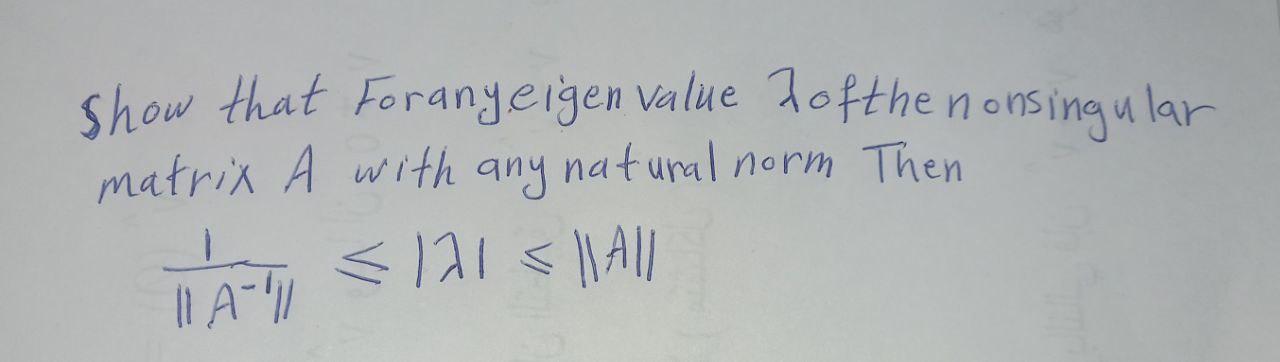 Show that For any eigen value λ of the nonsingular
matrix A with any natural norm Then
1/‖A⁻¹‖ ≤ |λ| ≤ ‖A‖